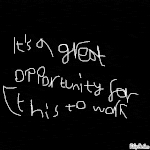 It's a great
opportunity for
(this to work